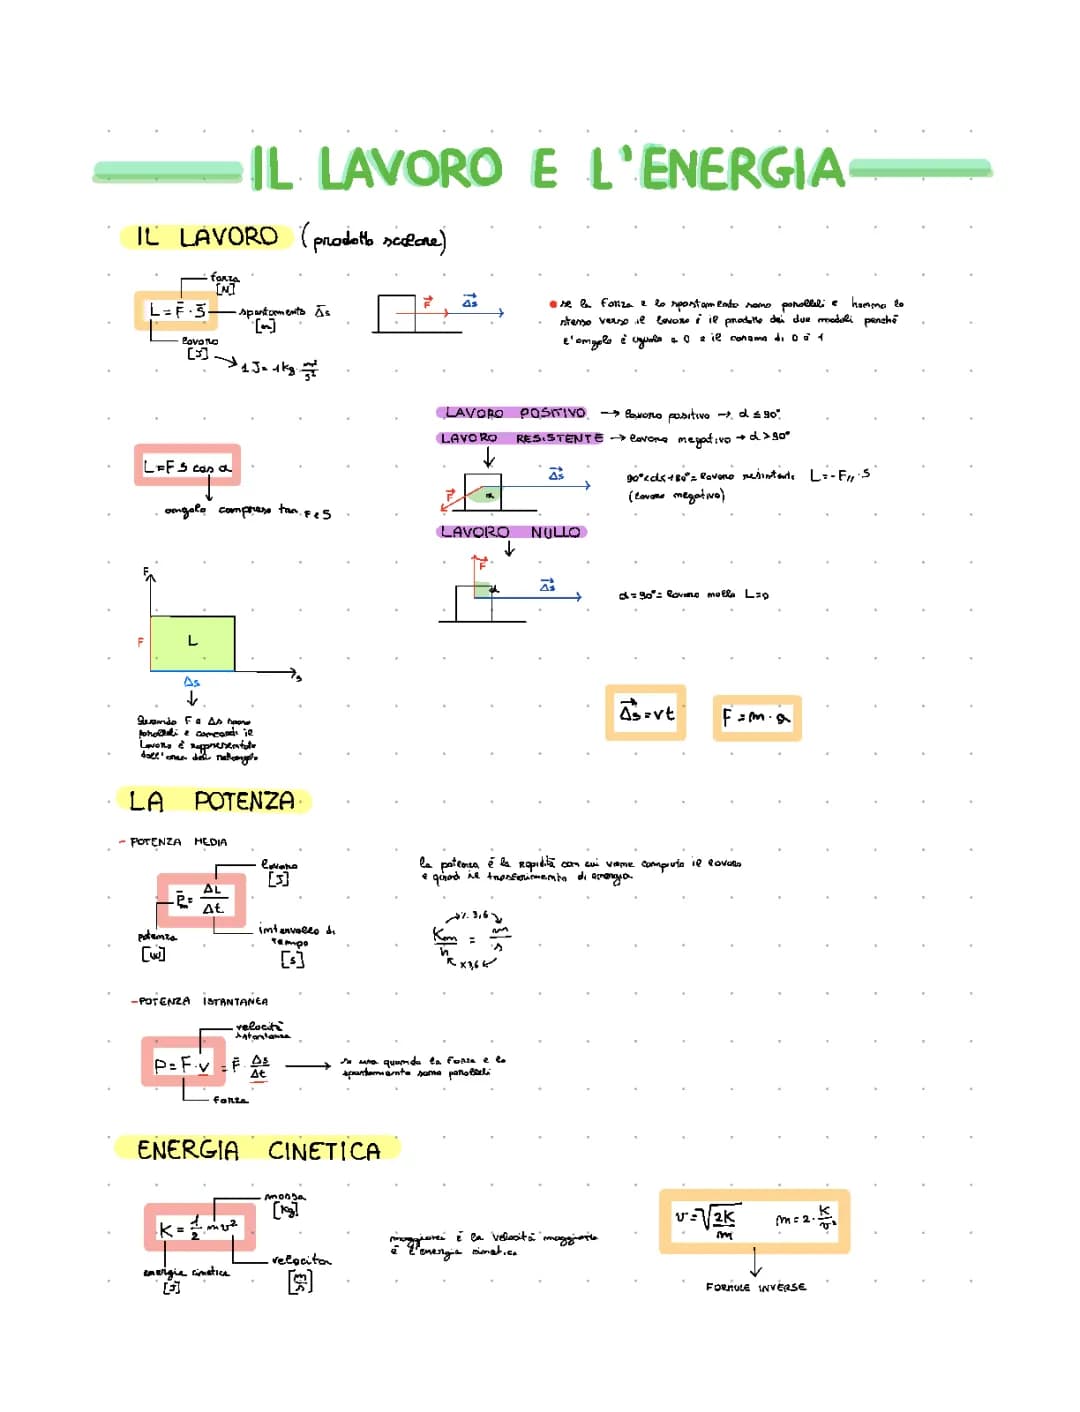 IL LAVORO E L'ENERGIA
IL LAVORO (prodotto scalare)
forza
[N]
L = F · S
spostamento Δs
[m]
lavoro
[J]
1 J = 1 kg · m²/s²
F Δs
se la forza e lo spostamento sono paralleli e hanno lo
stesso verso il lavoro è il prodotto dei due moduli perché
l'angolo è uguale a 0 e il coseno di 0 è 1
LAVORO POSITIVO → lavoro positivo → α ≤ 90°
LAVORO RESISTENTE → lavoro negativo → α > 90°
L = F S cos α
angolo compreso tra F e S
F α Δs
90° < α ≤ 180° = lavoro resistente L = -F// · S
(lavoro negativo)
LAVORO NULLO
F α Δs
α = 90° = lavoro nullo L=0
F
F L
Δs s
Quando F e Δs sono
paralleli e concordi il
Lavoro è rappresentato
dall'area del rettangolo
Δs = vt
F = m · a
LA POTENZA
- POTENZA MEDIA
lavoro
[J]
Pm = ΔL/Δt
potenza
[W]
intervallo di
tempo
[s]
la potenza è la rapidità con cui viene compiuto il lavoro
e quindi il trasferimento di energia
: 3,6
Km/h = m/s
x3,6
- POTENZA ISTANTANEA
velocità
istantanea
P = F · v = F · Δs/Δt
forza
si usa quando la forza e lo
spostamento sono paralleli
ENERGIA CINETICA
massa
[Kg]
K = 1/2 m v²
energia cinetica
[J]
velocità
[m/s]
maggiore è la velocità maggiore
è l'energia cinetica
v = √2K/m m = 2 · K/v²
FORMULE INVERSE